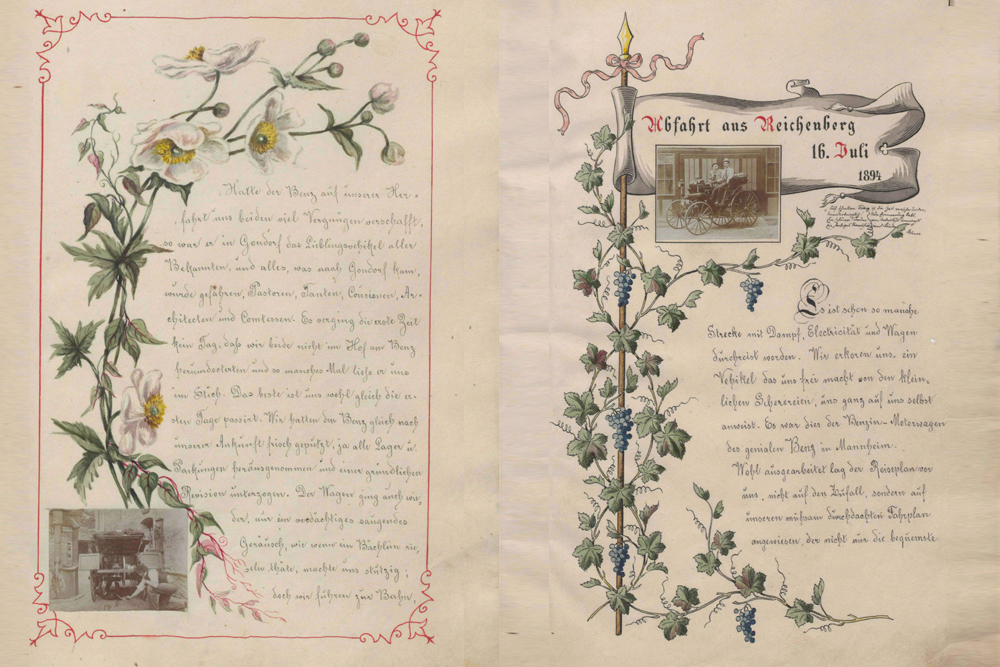 Hatte der Benz auf unserer Her-
fahrt uns beiden viel Vergnügen verschafft,
so war er in Gondorf das Lieblingsvehikel aller
Bekannten, und alles, was nach Gondorf kam,
wurde gefahren, Pastoren, Tanten, Cousinen, Ar-
chitecten und Comtessen. Es verging die erste Zeit
kein Tag, daß wir beide nicht im Hof am Benz
herumdocterten und so manches Mal ließ er uns
im Stich. Das beste ist uns wohl gleich die er-
sten Tage passirt. Wir hatten den Benz gleich nach
unserer Ankunft frisch geputzt, ja alle Lager u.
Packungen herausgenommen und einer gründlichen
Revision unterzogen. Der Wagen ging auch wie
der, nur ein verdächtiges saugendes
Geräusch, wie wenn ein Bächlein rie
seln thäte, machte uns stutzig;
doch wir fuhren zur Bahn,
Abfahrt aus Reichenberg
16. Juli
1894
Es ist schon so manche
Strecke mit Dampf, Electricität und Wagen
durchreist worden. Wir erkoren uns, ein
Vehikel das uns frei macht von den klein-
lichen Scherereien, uns ganz auf uns selbst
anweist. Es war dies der Benzin-Motorwagen
des genialen Benz in Mannheim.
Wohl ausgearbeitet lag der Reiseplan vor
uns, nicht auf den Zufall, sondern auf
unseren mühsam durchdachten Fahrplan
angewiesen, der nicht nur die bequemste